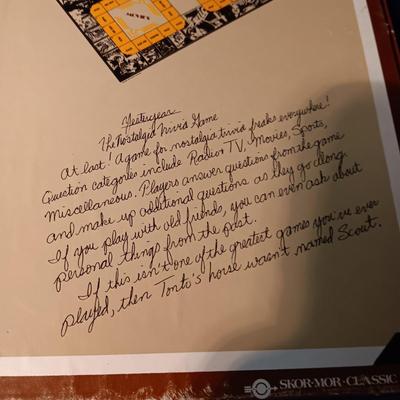 MOVIES
Yesteryear:
The Nostalgia Trivia Game
At last! A game for nostalgia trivia freaks everywhere!
Question categories include Radio & TV, Movies, Sports,
Miscellaneous. Players answer questions from the game
and make up additional questions as they go along.
If you play with old friends, you can even ask about
personal things from the past.
If this isn't one of the greatest games you've ever
played, then Tonto's horse wasn't named Scout.
SKOR-MOR-CLASSIC